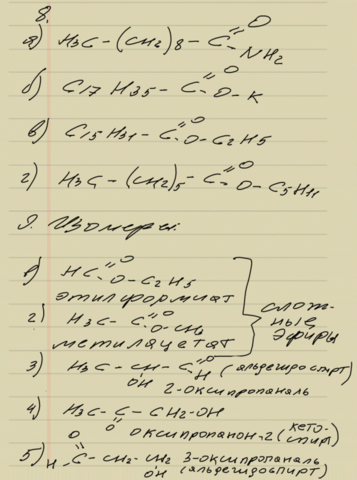 8.
а) H3C-(CH2)8-C=O NH2
б) C17H35-C=O O-K
в) C15H31-C=O O-C2H5
г) H3C-(CH2)5-C=O O-C5H11
9. Изомеры.
1) HC=O O-C2H5
этилформиат
2) H3C-C=O O-CH3
метилацетат
сложные эфиры
3) H3C-CH-C=O H (альдегидоспирт)
OH
2-оксипропаналь
4) H3C-C-CH2-OH
O оксипропанон-2 (кето-
спирт)
5) O
H-C-CH2-CH2 3-оксипропаналь
OH (альдегидоспирт)